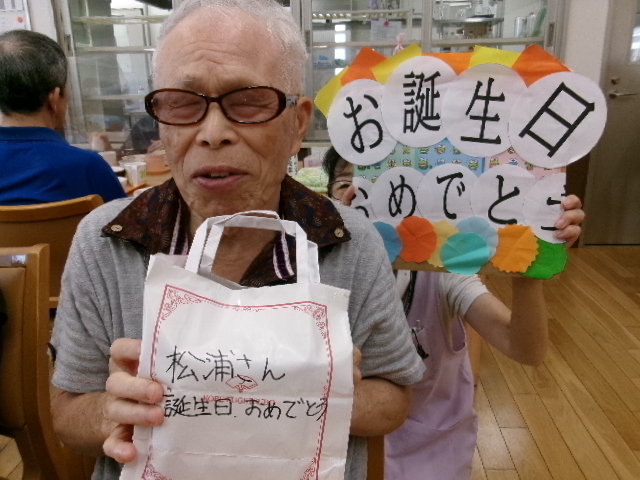 お誕生日
おめでとう
松浦さん
誕生日、おめでとう